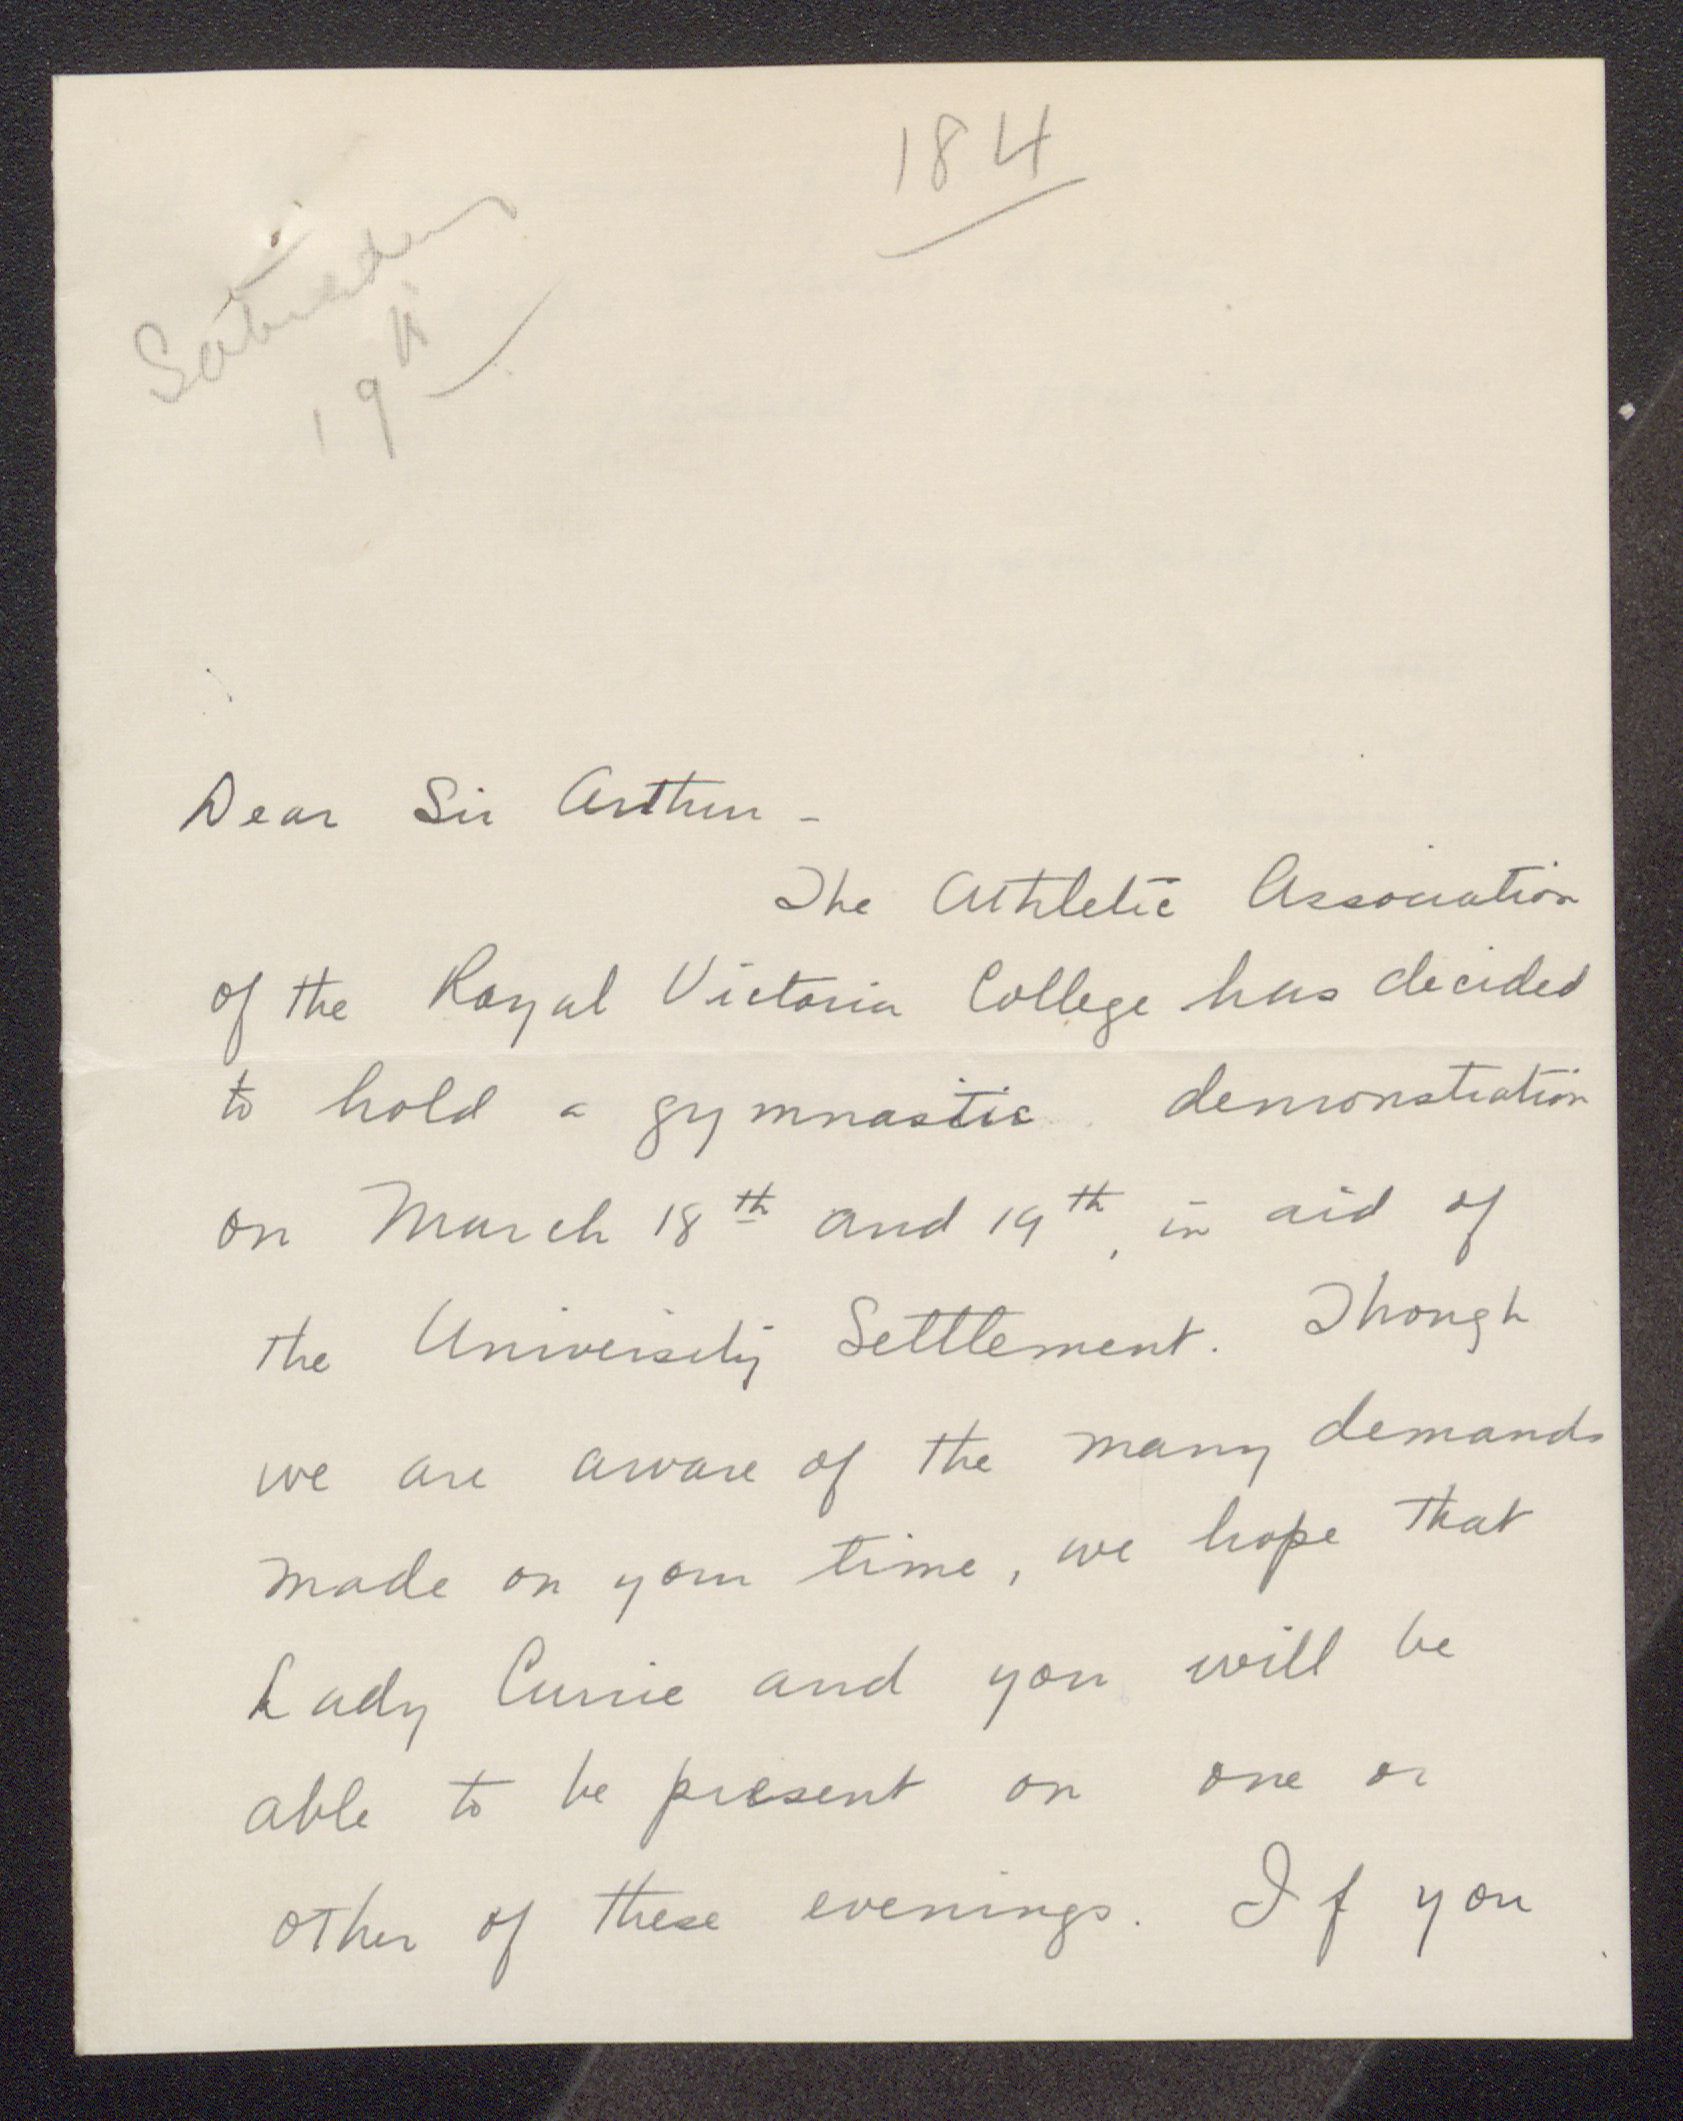 184
Saturday
19th
Dear Sir Arthur -
The Athletic Association
of the Royal Victoria College has decided
to hold a gymnastic demonstration
on March 18th and 19th, in aid of
the University Settlement. Though
we are aware of the many demands
made on your time, we hope that
Lady Currie and you will be
able to be present on one or
other of these evenings. If you